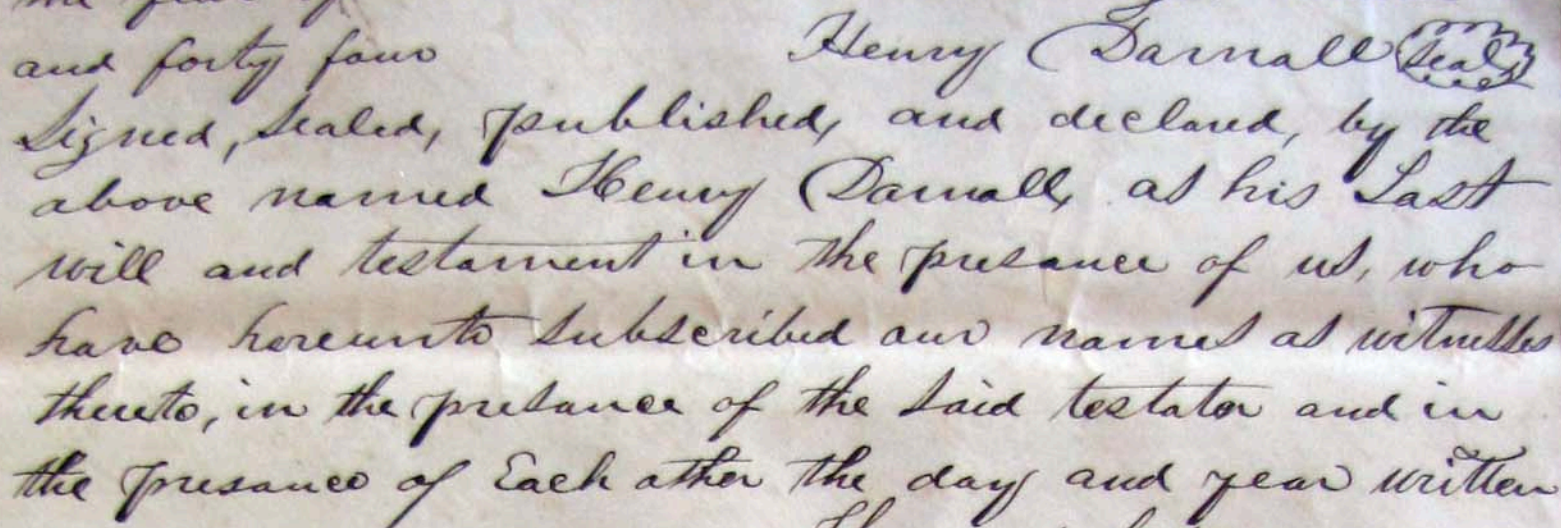 the year of
and forty four Henry Darnall Seal
Signed, Sealed, published, and declared, by the
above named Henry Darnall, as his Last
will and testament in the presance of us, who
have hereunto subscribed our names as witnesses
thereto, in the presance of the said testator and in
the presance of Each other the day and year written